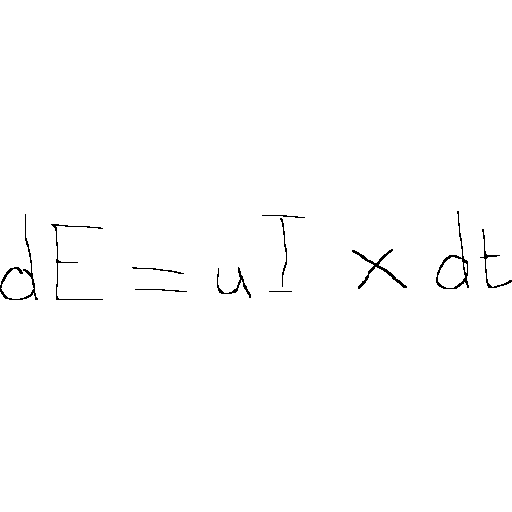 dE = uI × dt